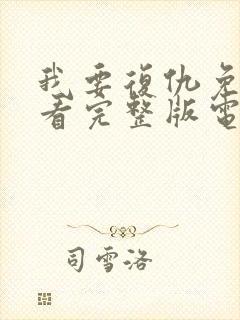 我要復仇免
看完整版電
司雪洛